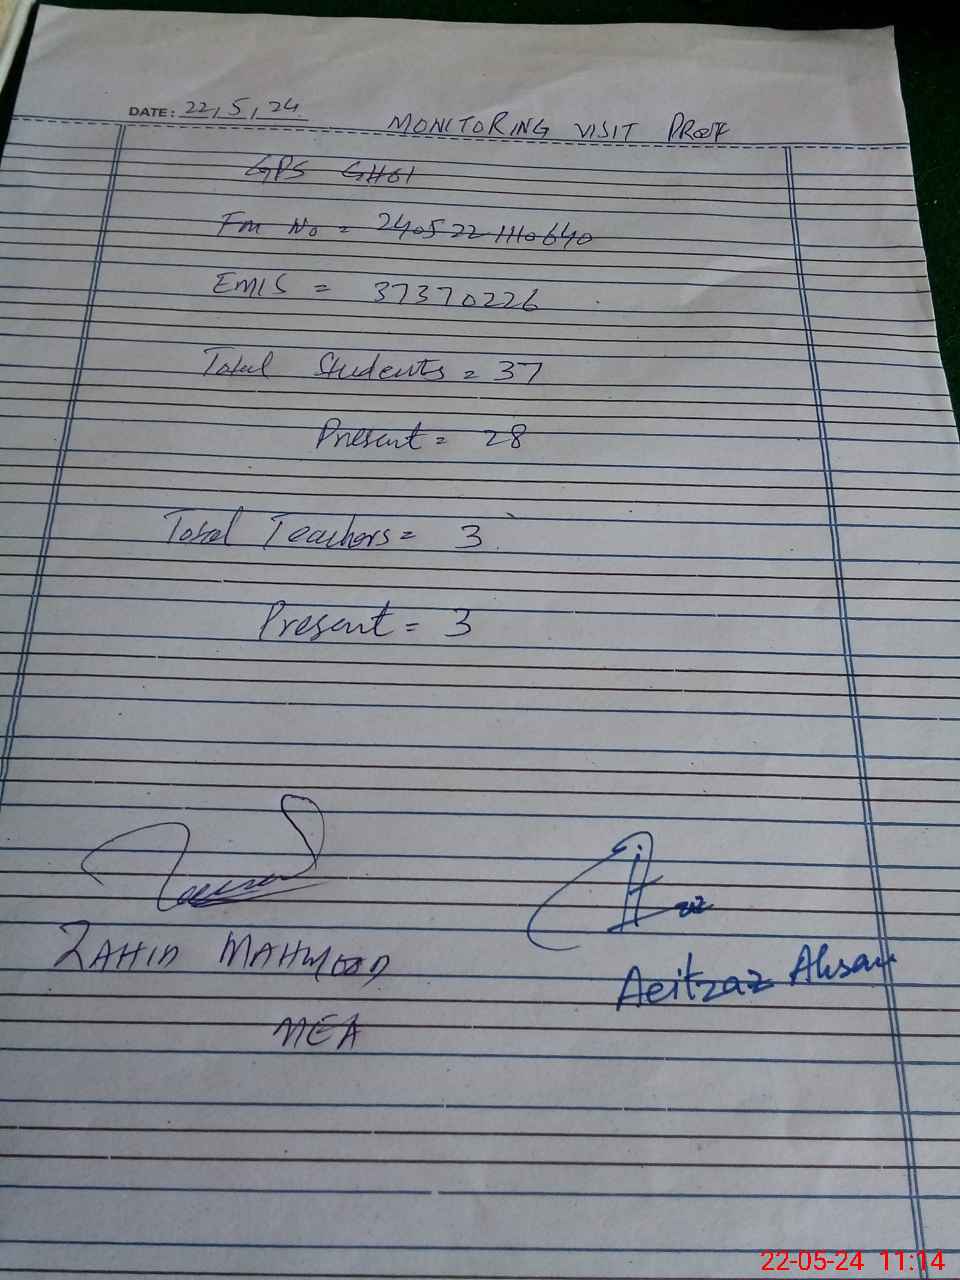 DATE: 22, 5, 24
MONITORING VISIT PROOF
GPS GHOI
Fm No = 240522110640
EMIS = 37370226
Total Students = 37
Present = 28
Total Teachers = 3
Present = 3
ZAHID MAHMOOD
MEA
Aeitzaz Ahsan
22-05-24 11:14